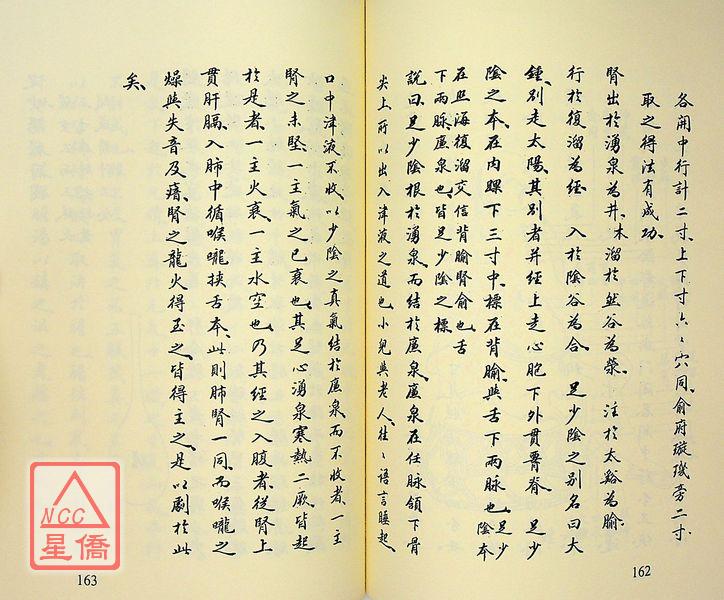 各開中行計二寸、上下寸六、穴同俞府璇璣旁二寸、
取之得法有成功、
腎出於湧泉為井、木溜於然谷為榮、注於太谿為腧、
行於復溜為經、入於陰谷為合、足少陰之別名曰大
鍾、別走太陽、其別者并經上走心胞下外貫膂脊、足少
陰之本在內踝下三寸中、標在背腧與舌下兩脉也、足少陰本
在照海復溜交信背腧腎俞也舌
下兩脉廉泉也、皆足少陰之標
說曰、足少陰根於湧泉、而結於廉泉、廉泉在任脉頷下骨
尖上所以出入津液之道也、小兒與老人、往、語言睡起、
口中津液不收、以少陰之真氣結於廉泉、而不收者、一主
腎之未堅、一主氣之已衰也、其足心湧泉寒熱二厥、皆起
於是者、一主火衰、一主水空也、乃其經之入腹者、從腎上
貫肝膈、入肺中、循喉嚨、挾舌本、此則肺腎一同、而喉嚨之
燥與失音及瘖、腎之龍火得主之、皆得主之、是以劇於此
矣、
NCC
星僑
163
162